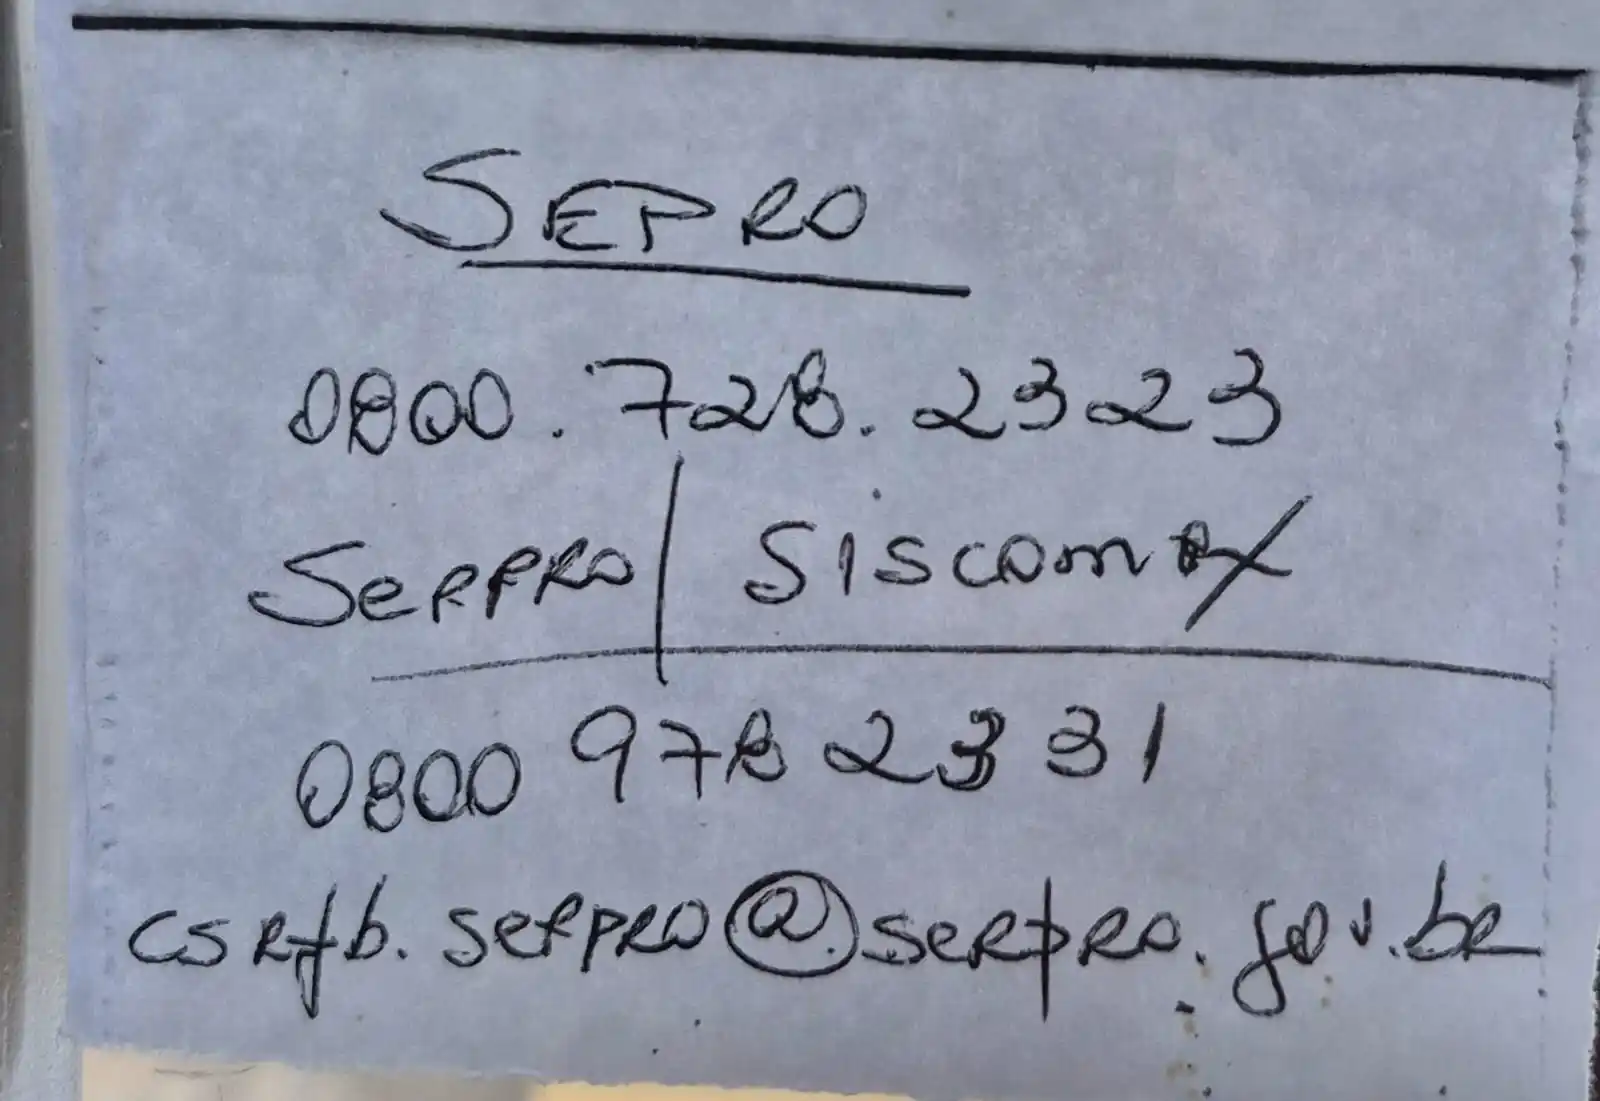 SEPRO
0800.728.2323
SERPRO/SISCOMEX
0800 978 2331
CSRfb.serpro@serpro.gov.br